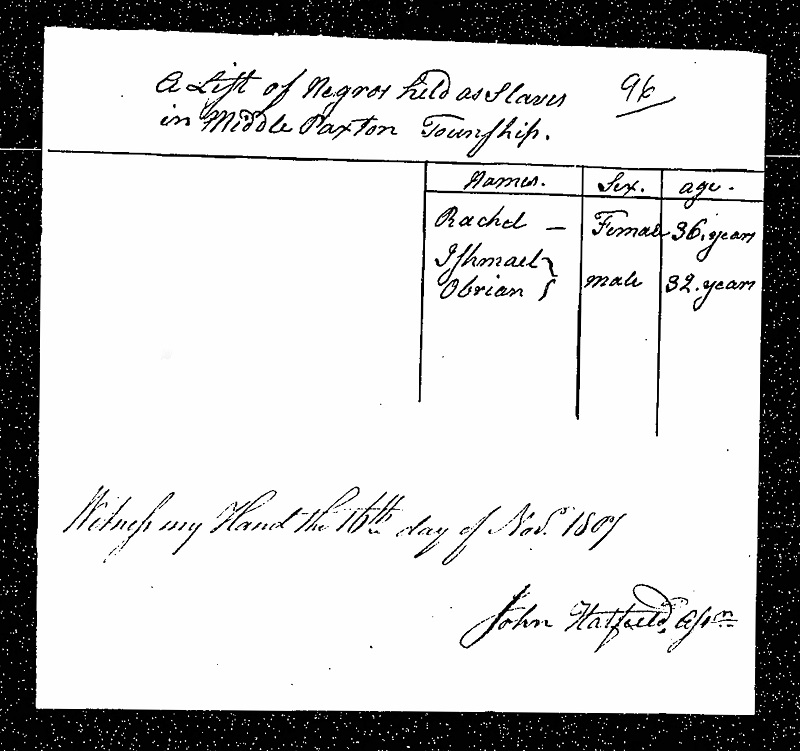 A List of Negros held as Slaves
in Middle Paxton Township.
96
Names. Sex. age.
Rachel — Female 36. years
Ishmael }
Obrian } male 32. years
Witness my Hand the 16th day of Novr. 1807
John Hatfield, Assr